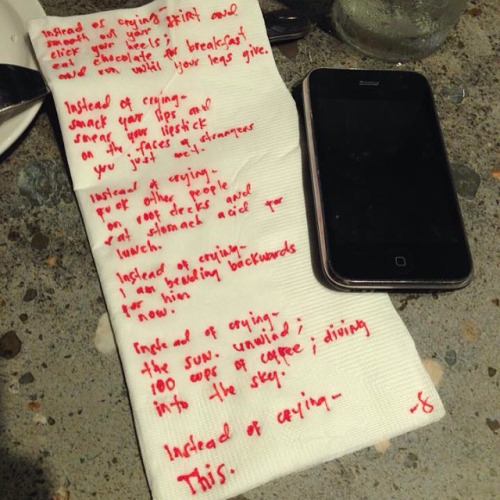 Instead of crying-
smooth out your skirt and
click your heels;
eat chocolate for breakfast
and run until your legs give.
Instead of crying-
smack your lips and
smear your lipstick
on the faces of strangers
you just met.
Instead of crying-
fuck other people
on roof decks and
eat stomach acid for
lunch.
Instead of crying-
I am bending backwards
for him
now.
Instead of crying-
the sun. unwind;
100 cups of coffee; diving
into the sky.
Instead of crying-
This.
-8